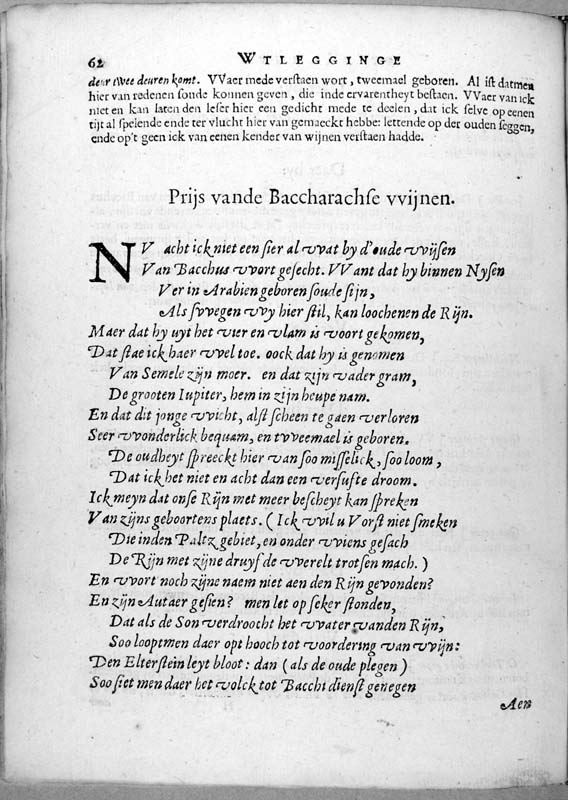 62 WTLEGGINGE
deur twee deuren komt. VVaer mede verstaen wort, tweemael geboren. Al ist datmen
hier van redenen sonde konnen geven, die inde ervarentheyt bestaen. VVaer van ick
niet en kan laten den leser hier een gedicht mede te deelen, dat ick selve op eenen
tijt al spelende ende ter vlucht hier van gemaeckt hebbe: lettende op der ouden seggen,
ende op't geen ick van eenen kender van wijnen verstaen hadde.
Prijs vande Baccharachse vvijnen.
NV acht ick niet een sier al vvat by d'oude vvijsen
Van Bacchus vvort gesecht. VVant dat hy binnen Nysen
Ver in Arabien geboren soude sijn,
Als svvegen vvy hier stil, kan loochenen de Rijn.
Maer dat hy uyt het vier en vlam is voort gekomen,
Dat stae ick haer vvel toe. oock dat hy is genomen
Van Semele zijn moer. en dat zijn vader gram,
De grooten Iupiter, hem in zijn heupe nam.
En dat dit jonge vvicht, alst scheen te gaen verloren
Seer vvonderlick bequam, en tvveemael is geboren.
De oudheyt spreeckt hier van soo misselick, soo loom,
Dat ick het niet en acht dan een versufte droom.
Ick meyn dat onse Rijn met meer bescheyt kan spreken
Van zijns geboortens plaets. (Ick vvil u Vorst niet smeken
Die inden Paltz gebiet, en onder vviens gesach
De Rijn met zijne druyf de vverelt trotsen mach.)
En vvort noch zijne naem niet aen den Rijn gevonden?
En zijn Autaer gesien? men let op seker stonden,
Dat als de Son verdroocht het vvater vanden Rijn,
Soo looptmen daer opt hooch tot voordering van vvijn:
Den Elterstein leyt bloot: dan (als de oude plegen)
Soo siet men daer het volck tot Bacchi dienst genegen
Aen